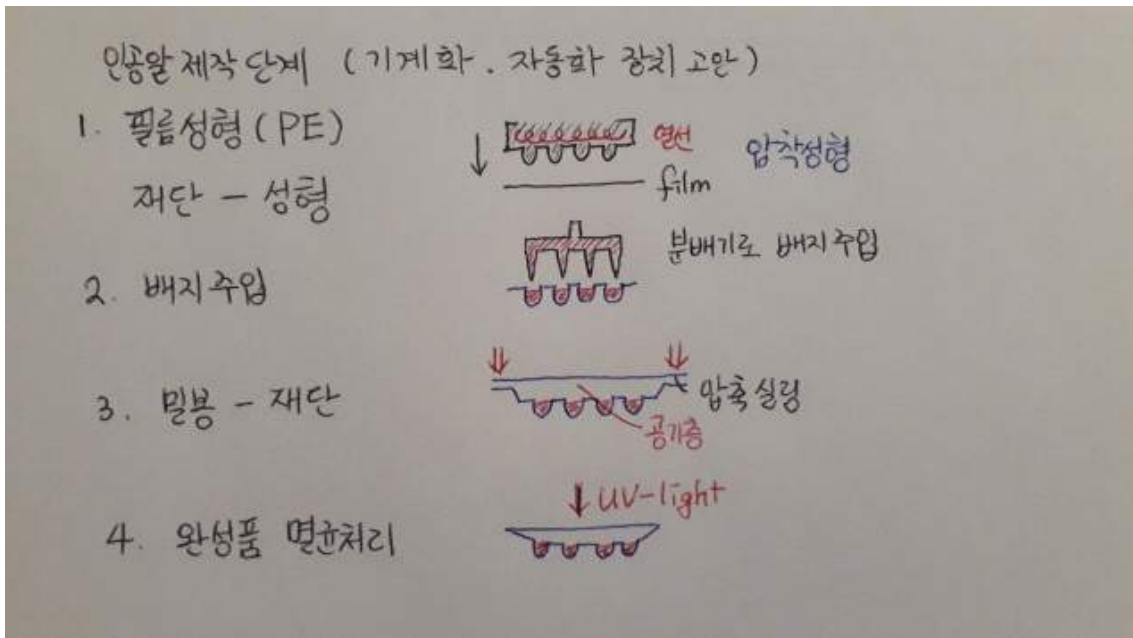 인공알 제작 단계 (기계화. 자동화 장치 고안)
1. 필름성형 (PE)
재단 - 성형
열선
압착성형
film
2. 배지주입
분배기로 배지주입
3. 밀봉 - 재단
압축실링
공기층
4. 완성품 멸균처리
UV-light